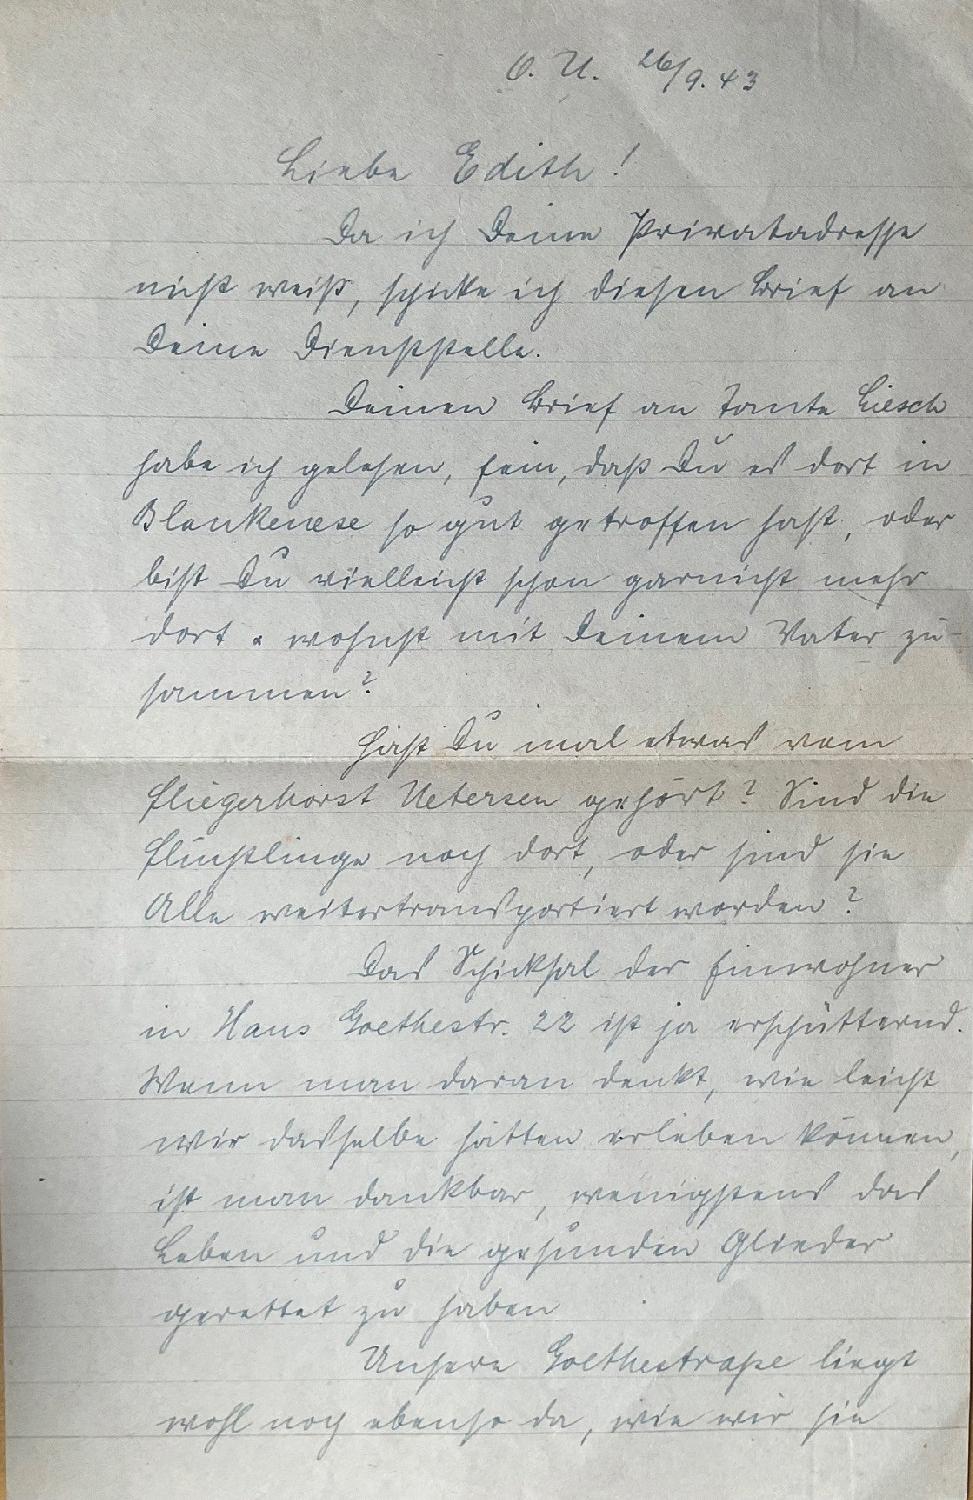 O. U. 26/9. 43
Liebe Edith!
Da ich Deine Privatadresse
nicht weiß, schicke ich diesen Brief an
Deine Dienststelle.
Deinen Brief an Tante Liesch
habe ich gelesen, fein, daß Du es dort in
Blankenese so gut getroffen hast, oder
bist Du vielleicht schon garnicht mehr
dort & wohnst mit Deinem Vater zu-
sammen?
Hast Du mal etwas vom
Fliegerhorst Uetersen gehört? Sind die
Flüchtlinge noch dort, oder sind sie
Alle weitertransportiert worden?
Das Schicksal der Einwohner
in Haus Goethestr. 22 ist ja erschütternd.
Wenn man daran denkt, wie leicht
wir dasselbe hätten erleben können,
ist man dankbar, wenigstens das
Leben und die gesunden Glieder
gerettet zu haben
Unsere Goethestraße liegt
wohl noch ebenso da, wie wir sie